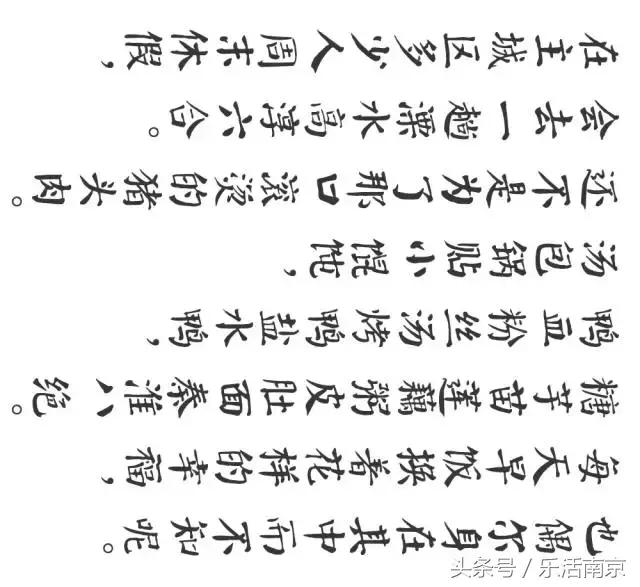 在主城区多少人周末休假，
会去一趟溧水高淳六合。
还不是为了那口滚烫的猪头肉。
汤包锅贴小馄饨，
鸭血粉丝汤烤鸭盐水鸭，
糖芋苗莲藕粥皮肚面秦淮八绝。
每天早饭换着花样的幸福，
也偶尔身在其中而不知呢。
头条号/乐活南京